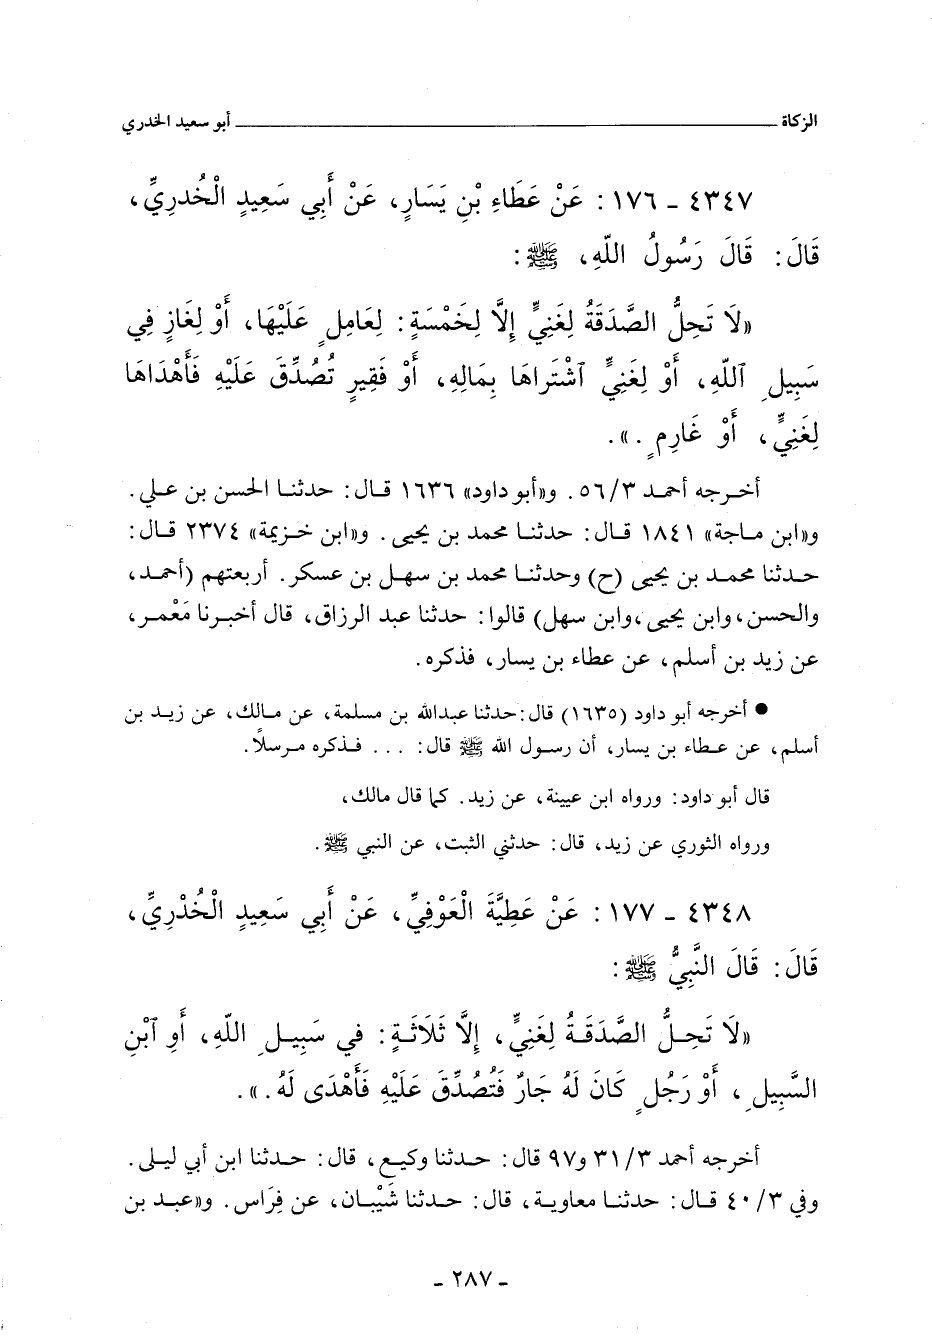 الزكاة ـــــــــــــــــــ أبو سعيد الخدري
٤٣٤٧ ـ ١٧٦ : عَنْ عَطَاءِ بْنِ يَسَارٍ، عَنْ أَبِي سَعِيدٍ الْخُدرِيِّ،
قَالَ: قَالَ رَسُولُ اللّهِ، ﷺ:
«لَا تَحِلُّ الصَّدَقَةُ لِغَنِيٍّ إِلَّا لِخَمْسَةٍ: لِعَامِلٍ عَلَيْهَا، أَوْ لِغَازٍ فِي
سَبِيلِ ٱللّهِ، أَوْ لِغَنِيٍّ ٱشْتَراهَا بِمَالِهِ، أَوْ فَقِيرٍ تُصُدِّقَ عَلَيْهِ فَأَهْدَاهَا
لِغَنِيٍّ، أَوْ غَارِمٍ.».
أخرجه أحمد ٥٦/٣. و«أبو داود» ١٦٣٦ قال: حدثنا الحسن بن علي.
و«ابن ماجة» ١٨٤١ قال: حدثنا محمد بن يحيى. و«ابن خزيمة» ٢٣٧٤ قال:
حدثنا محمد بن يحيى (ح) وحدثنا محمد بن سهل بن عسكر. أربعتهم (أحمد،
والحسن، وابن يحيى، وابن سهل) قالوا: حدثنا عبد الرزاق، قال أخبرنا مَعْمر،
عن زيد بن أسلم، عن عطاء بن يسار، فذكره.
● أخرجه أبو داود (١٦٣٥) قال: حدثنا عبدالله بن مسلمة، عن مالك، عن زيد بن
أسلم، عن عطاء بن يسار، أن رسول الله ﷺ قال: ... فذكره مرسلاً.
قال أبو داود: ورواه ابن عيينة، عن زيد. كما قال مالك،
ورواه الثوري عن زيد، قال: حدثني الثبت، عن النبي ﷺ.
٤٣٤٨ ـ ١٧٧ : عَنْ عَطِيَّةَ الْعَوْفِيِّ، عَنْ أَبِي سَعِيدٍ الْخُدْرِيِّ،
قَالَ: قَالَ النَّبِيُّ ﷺ:
«لَا تَحِلُّ الصَّدَقَةُ لِغَنِيٍّ، إِلَّا ثَلَاثَةٍ: في سَبِيلِ اللّهِ، أَوِ ٱبْنِ
السَّبِيلِ، أَوْ رَجُلٍ كَانَ لَهُ جَارٌ فَتُصُدِّقَ عَلَيْهِ فَأَهْدَى لَهُ.».
أخرجه أحمد ٣١/٣ و٩٧ قال: حدثنا وكيع، قال: حدثنا ابن أبي ليلى.
وفي ٤٠/٣ قال: حدثنا معاوية، قال: حدثنا شَيْبان، عن فِرَاس. و«عبد بن
- ٢٨٧ -